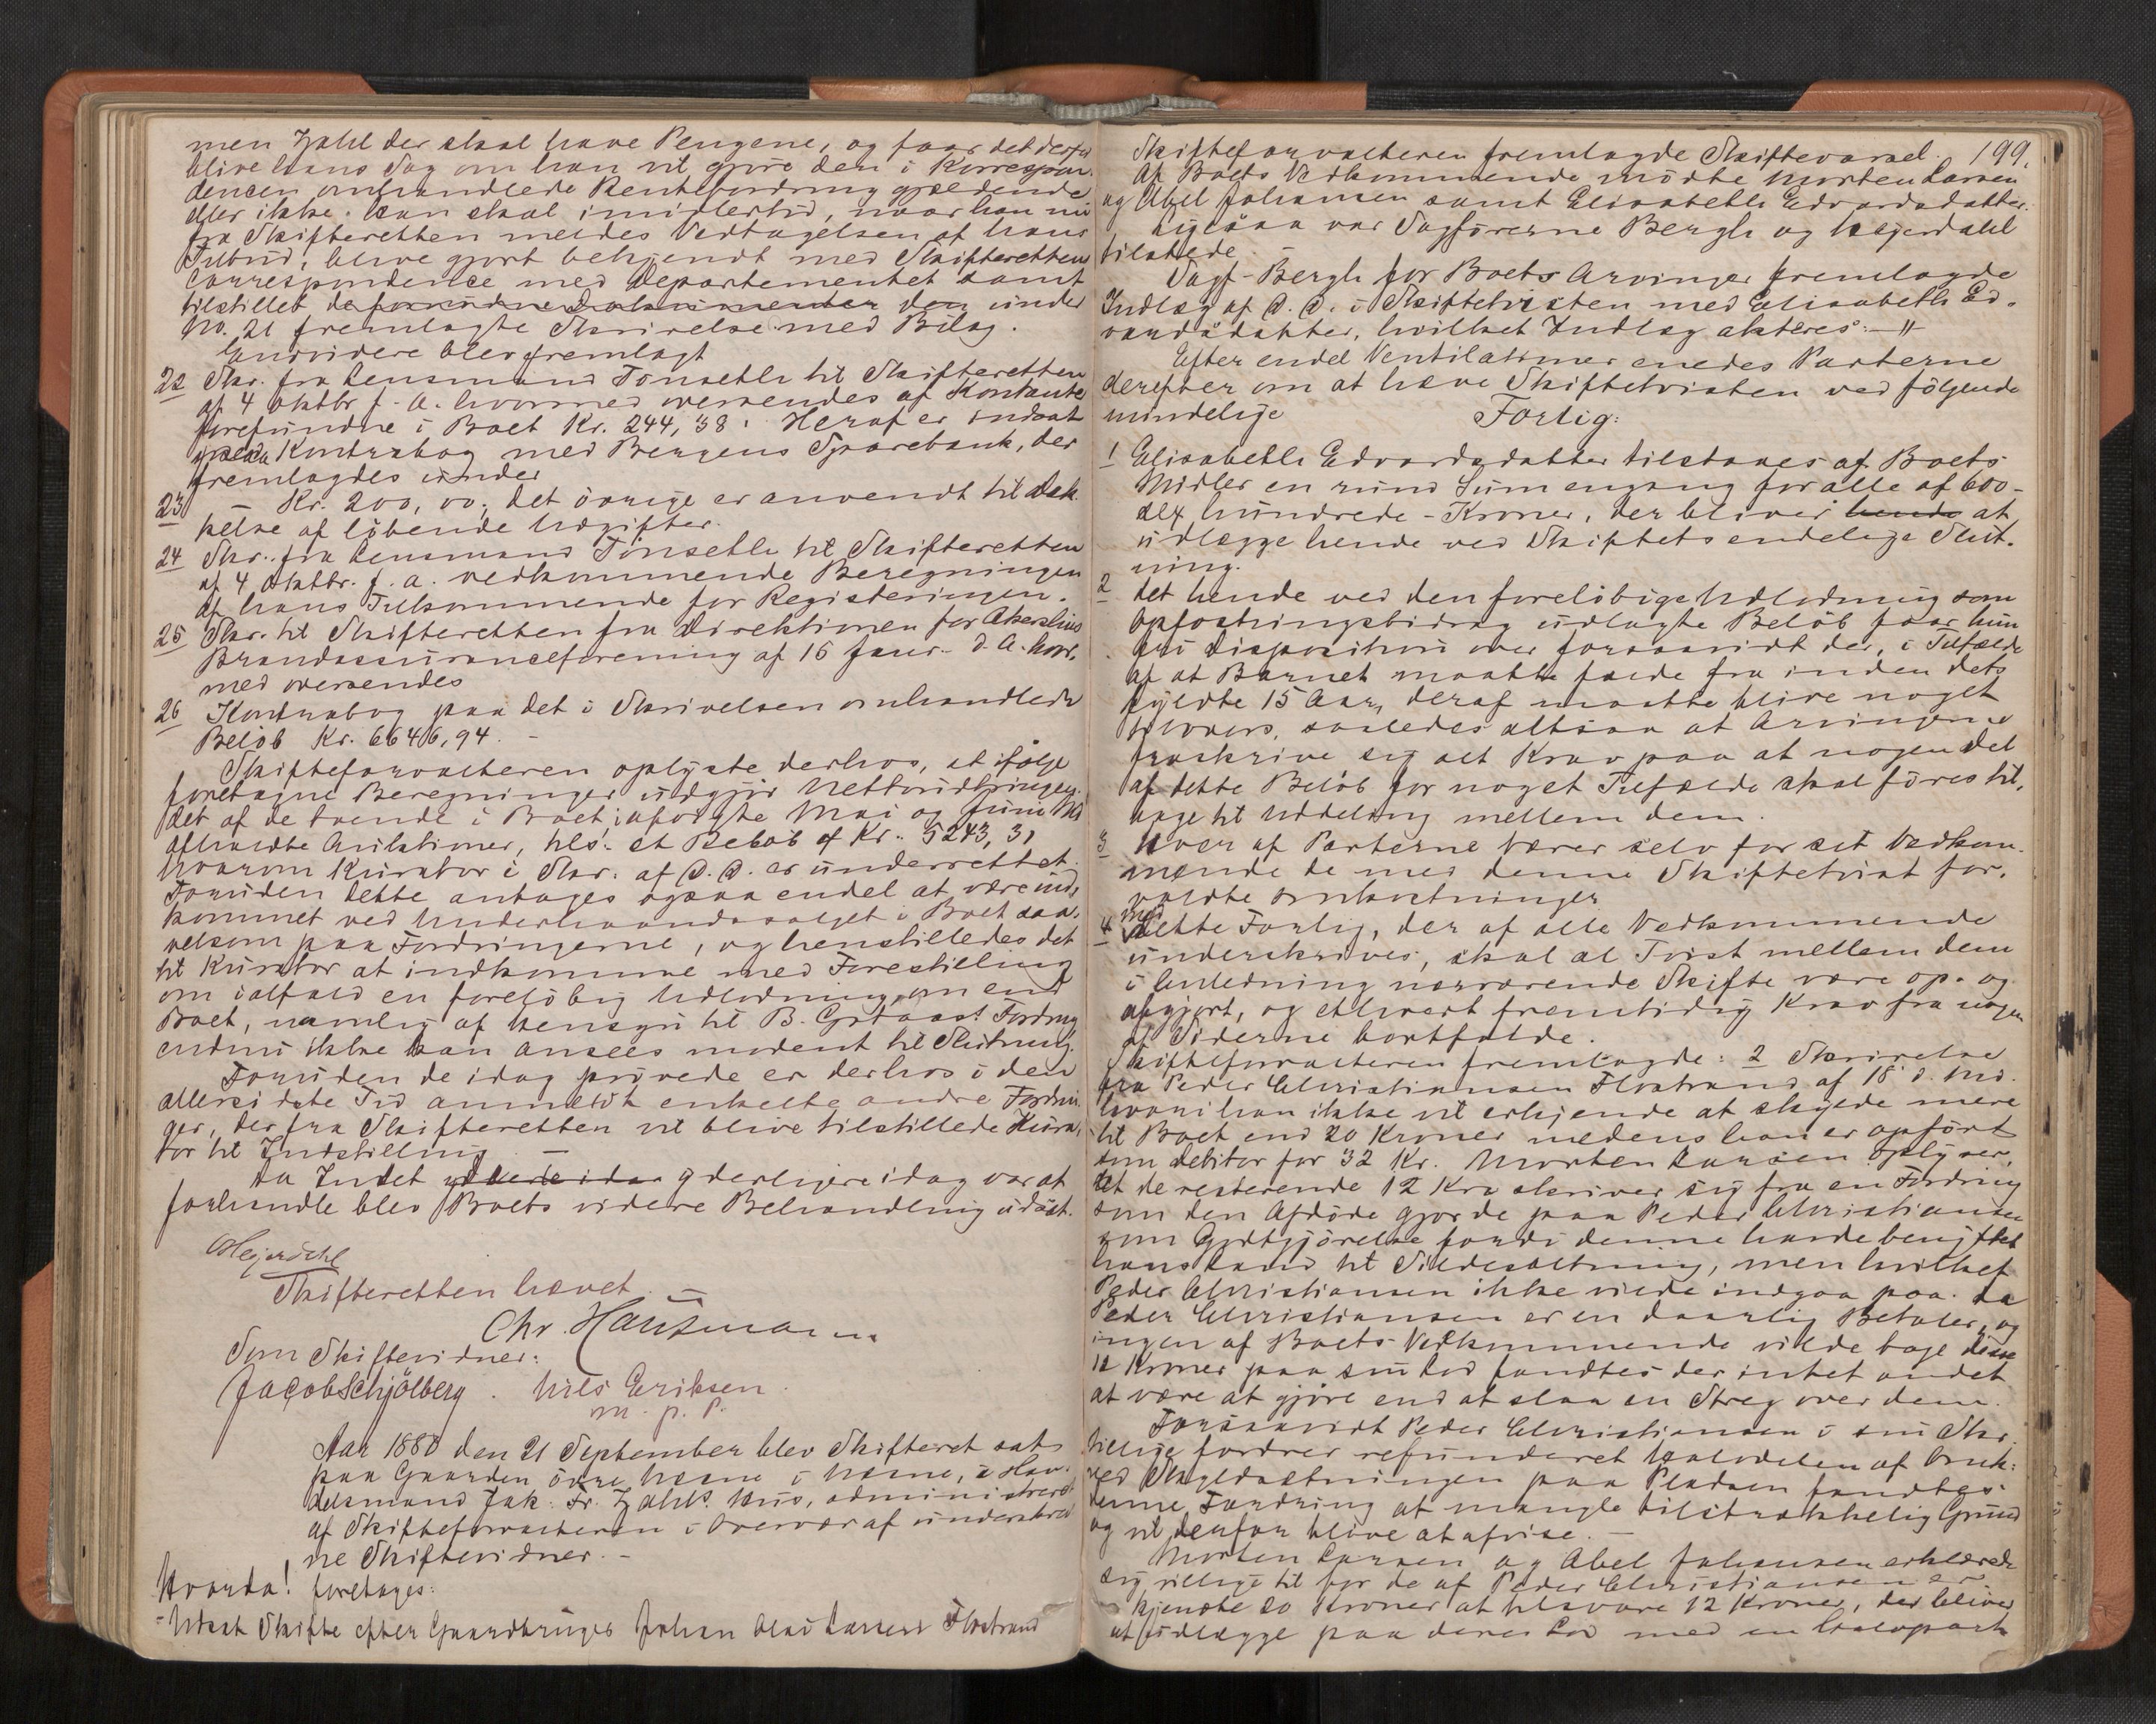 men Zahl der skal have Pengene, og faar det derfor
blive hans Sag om han vil gjøre den i Korrespon-
dencen omhandlede Rentefordring gjældende
eller ikke. Han skal imidlertid, naar han nu
fra Skifteretten meldes Vedtagelsen af hans
Tilbud, blive gjort bekjendt med Skifterettens
Correspondence med Departementet samt
tilstillet de den under
No. 21 fremlagte Skrivelse med Bilag.
Endvidere blev fremlagt
22 Skr. fra Lensmand Tønseth til Skifteretten
af 4 Oktbr f. A. hvormed oversendes af Kontante
forefundne i Boet Kr. 244,38. Heraf er indsat
Kontrabog med Bergens Sparebank, der
fremlagdes under
23 – Kr. 200,00. det øvrige er anvendt til dæk-
kelse af løbende Udgifter.
24 Skr. fra Lensmand Tønseth til Skifteretten
af 4 Oktbr. f. A. vedkommende Beregningen
af hans Tilkommende for Registeringen.
25 Skr. til Skifteretten fra Direktionen for Akershus
Brandassuranceforening af 16 Janr. d. A. hvor-
med oversendes
26 Kontrabog paa det i Skrivelsen omhandlede
Beløb Kr. 6646,94. –
Skifteforvalteren oplyste derhos, at ifølge
foretagne Beregninger udgjør Nettoudbringen-
det af de tvende i Boet i afvigte Mai og Juni Md
afholdte Auktioner, tils. et Beløb af Kr. 5243,31
hvorom Kurator i Skr. af D. D. er underrettet.
Foruden dette antages ogsaa endel at være ind-
kommet ved Underhaandssalget i Boet saa-
velsom paa Fordringerne, og henstilledes det
til Kurator at indkomme med Forestilling
om ialfald en foreløbig Udlodning, om end
Boet, namlig af Hensyn til B. Fordring
endnu ikke kan ansees modent til Slutning.
Foruden de idag prøvede er derhos i den
allersidste Tid anmeldt enkelte andre Fordrin-
ger, der fra Skifteretten vil blive tilstillede Kura-
tor til Indstilling. –
Da Intet yderligere idag var at
forhandle blev Boets videre Behandling udsat.
Hejerdahl
Skifteretten hævet. –
Chr. Hausmann
Som Skiftevidner:
Jacob Schjölberg. Nils Eriksen.
m. p. P.
Aar 1880 den 21 September blev Skifteret sat
paa Gaarden øvre Næsne i Næsne, i Han-
delsmand Jak. Fr. Zahls Hus, administreret
af Skifteforvalteren i Overvær af underskrev-
ne Skiftevidner. –
Hvorda! foretages:
Udsat Skifte efter Gaardbruger Johan Olai Larsen Flostrand
199.
Skifteforvalteren fremlagde Skiftevarsel.
Af Boets Vedkommende mødte Morten Larsen
og Abel Johansen samt Elisabeth Edvardsdatter.
Ligesaa var Sagførerne Bergh og Hejerdahl
tilstede. –
Sagf. Bergh for Boets Arvinger fremlagde
Indlæg af D. D. i Skiftetvisten med Elisabeth Ed-
vardsdatter, hvilket Indlæg akteres: –"–
Efter endel Ventilationer enedes Parterne
derefter om at hæve Skiftetvisten ved følgende
mindelige
Forlig:
1 Elisabeth Edvardsdatter tilstaaes af Boets
Midler en rund Sum engang for alle af 600 –
sex hundrede – Kroner, der bliver hende at
udlægge hende ved Skiftets endelige Slut-
ning.
2 Det hende ved den foreløbige Udlodning som
Opfostringsbidrag udlagte Beløb faar hun
fri Disposition over forsaavidt der, i Tilfælde
af at Barnet maatte falde fra inden dets
fyldte 15 Aar, deraf maatte blive noget
tilovers, saaledes altsaa at Arvingerne
fraskrive sig alt Krav paa at nogen Del
af dette Beløb for noget Tilfælde skal føres til-
bage til Uddeling mellem dem.
3 Hver af Parterne bærer selv for sit Vedkom-
mende de med denne Skiftetvist for-
voldte Omkostninger
4 Med dette Forlig, der af alle Vedkommende
underskrives, skal al Tvist mellem dem
i Anledning nærværende Skifte være op- og
afgjort, og ethvert fremtidig Krav fra nogen
af Siderne bortfalde.
Skifteforvalteren fremlagde: 2 Skrivelse
fra Peder Christiansen Flostrand af 18 d. Md.
hvori han ikke vil erkjende at skylde mere
til Boet end 20 Kroner medens han er opført
som Debitor for 32 Kr. Morten Larsen oplyser,
at de resterende 12 Kr. skriver sig fra en Fordring
som den Afdøde gjorde paa Peder Christiansen
som Godtgjørelse fordi denne havde benyttet
hans Land til Sildesaltning, men hvilket
Peder Christiansen ikke vilde indgaa paa. Da
Peder Christiansen er en daarlig Betaler, og
ingen af Boets Vedkommende vilde tage disse
12 Kroner paa sin Lod fandtes der intet andet
at være at gjøre end at slaa en Streg over dem.
Forsaavidt Peder Christiansen i sin Skr.
tillige fordrer refunderet Halvdelen af Omk.
ved Skyldsætningen paa Pladsen fandtes
denne Fordring at mangle tilstrækkelig Grund
og vil derfor blive at afvise. –
Morten Larsen og Abel Johansen erklærede
sig villige til for de af Peder Christiansen er-
kjendte 20 Kroner at tilsvare 12 Kroner, der bliver
at udlægge paa deres Lod med en Halvpart